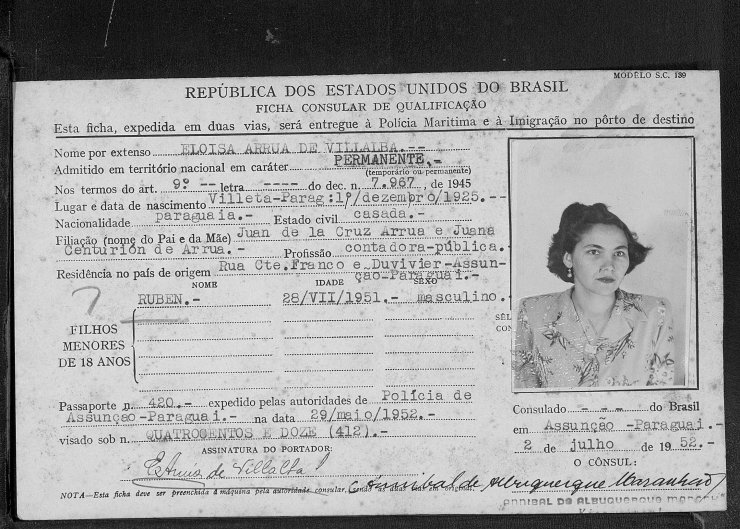 MODÊLO S.C. 139
REPÚBLICA DOS ESTADOS UNIDOS DO BRASIL
FICHA CONSULAR DE QUALIFICAÇÃO
Esta ficha, expedida em duas vias, será entregue à Polícia Marítima e à Imigração no pôrto de destino
Nome por extenso ELOISA ARRUA DE VILLALBA.--
Admitido em território nacional em caráter PERMANENTE.-
(temporário ou permanente)
Nos termos do art. 9º -- letra ---- do dec. n. 7.967, de 1945
Lugar e data de nascimento Villeta-Parag:1º/dezembro/1925.--
Nacionalidade paraguaia.- Estado civil casada.-
Filiação (nome do Pai e da Mãe) Juan de la Cruz Arrua e Juana
Centurión de Arrua.- Profissão contadora-pública.-
Residência no país de origem Rua Cte.Franco e Duvivier-Assun-
ção-Paraguai.-
NOME IDADE SEXO
RUBEN.- 28/VII/1951.- masculino.-
FILHOS
MENORES
DE 18 ANOS
Passaporte n. 420.- expedido pelas autoridades de Polícia de
Assunção-Paraguai.- na data 29/maio/1952.-
visado sob n. QUATROCENTOS E DOZE (412).-
ASSINATURA DO PORTADOR:
EArrua de Villalba
NOTA—Esta ficha deve ser preenchida à máquina pela autoridade consular, sendo as duas vias em original.
Consulado - - - do Brasil
em Assunção -Paraguai.-
2 de julho de 1952.-
O CÔNSUL:
Annibal de Albuquerque Maranhão
ANNIBAL DE ALBUQUERQUE MARANHÃO